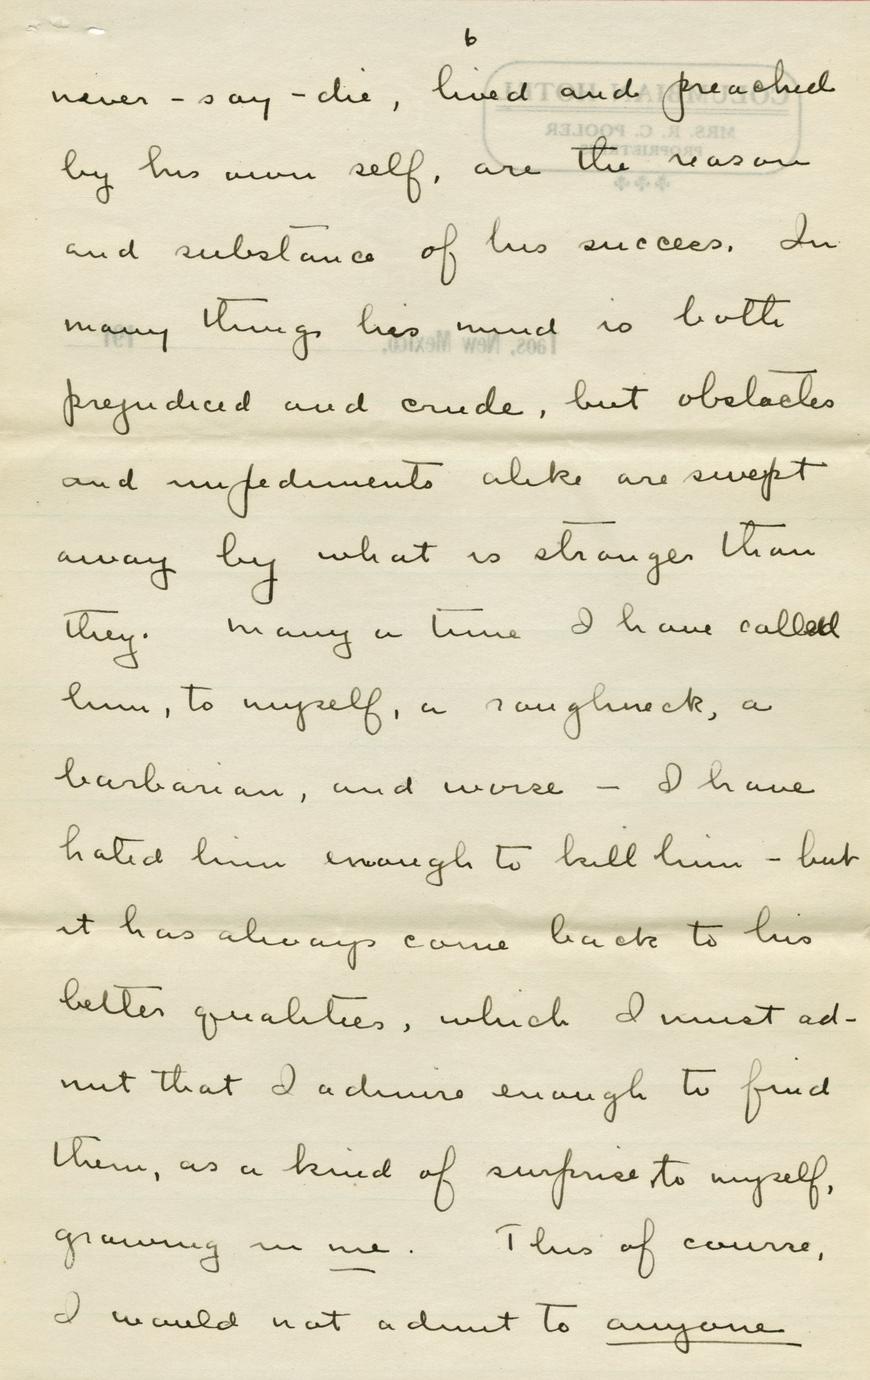 6
never-say-die, lived and preached
by his own self, are the reason
and substance of his success. In
many things his mind is both
prejudiced and crude, but obstacles
and impediments alike are swept
away by what is stronger than
they. Many a time I have called
him, to myself, a roughneck, a
barbarian, and worse - I have
hated him enough to kill him - but
it has always come back to his
better qualities, which I must ad-
mit that I admire enough to find
them, as a kind of surprise to myself,
growing in me. This of course,
I would not admit to anyone
COLUMBIAN HOTEL
MRS. R. C. POOLER
Taos, New Mexico,
191